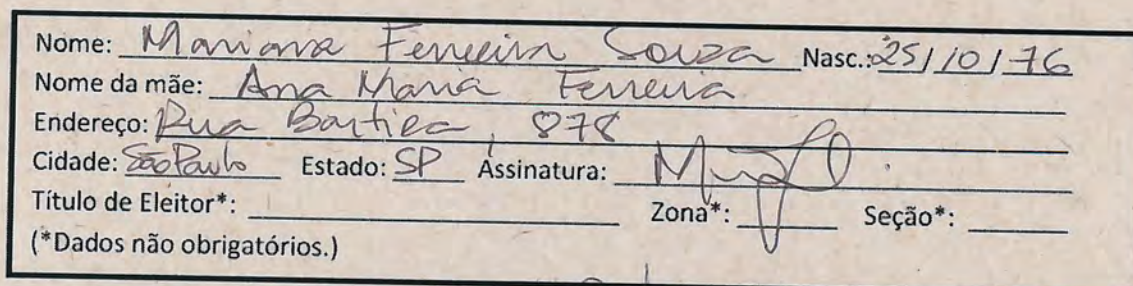 Nome: Mariana Ferreira Souza Nasc.: 25/10/76
Nome da mãe: Ana Maria Ferreira
Endereço: Rua 878
Cidade: São Paulo Estado: SP Assinatura:
Título de Eleitor*: Zona*: Seção*:
(*Dados não obrigatórios.)